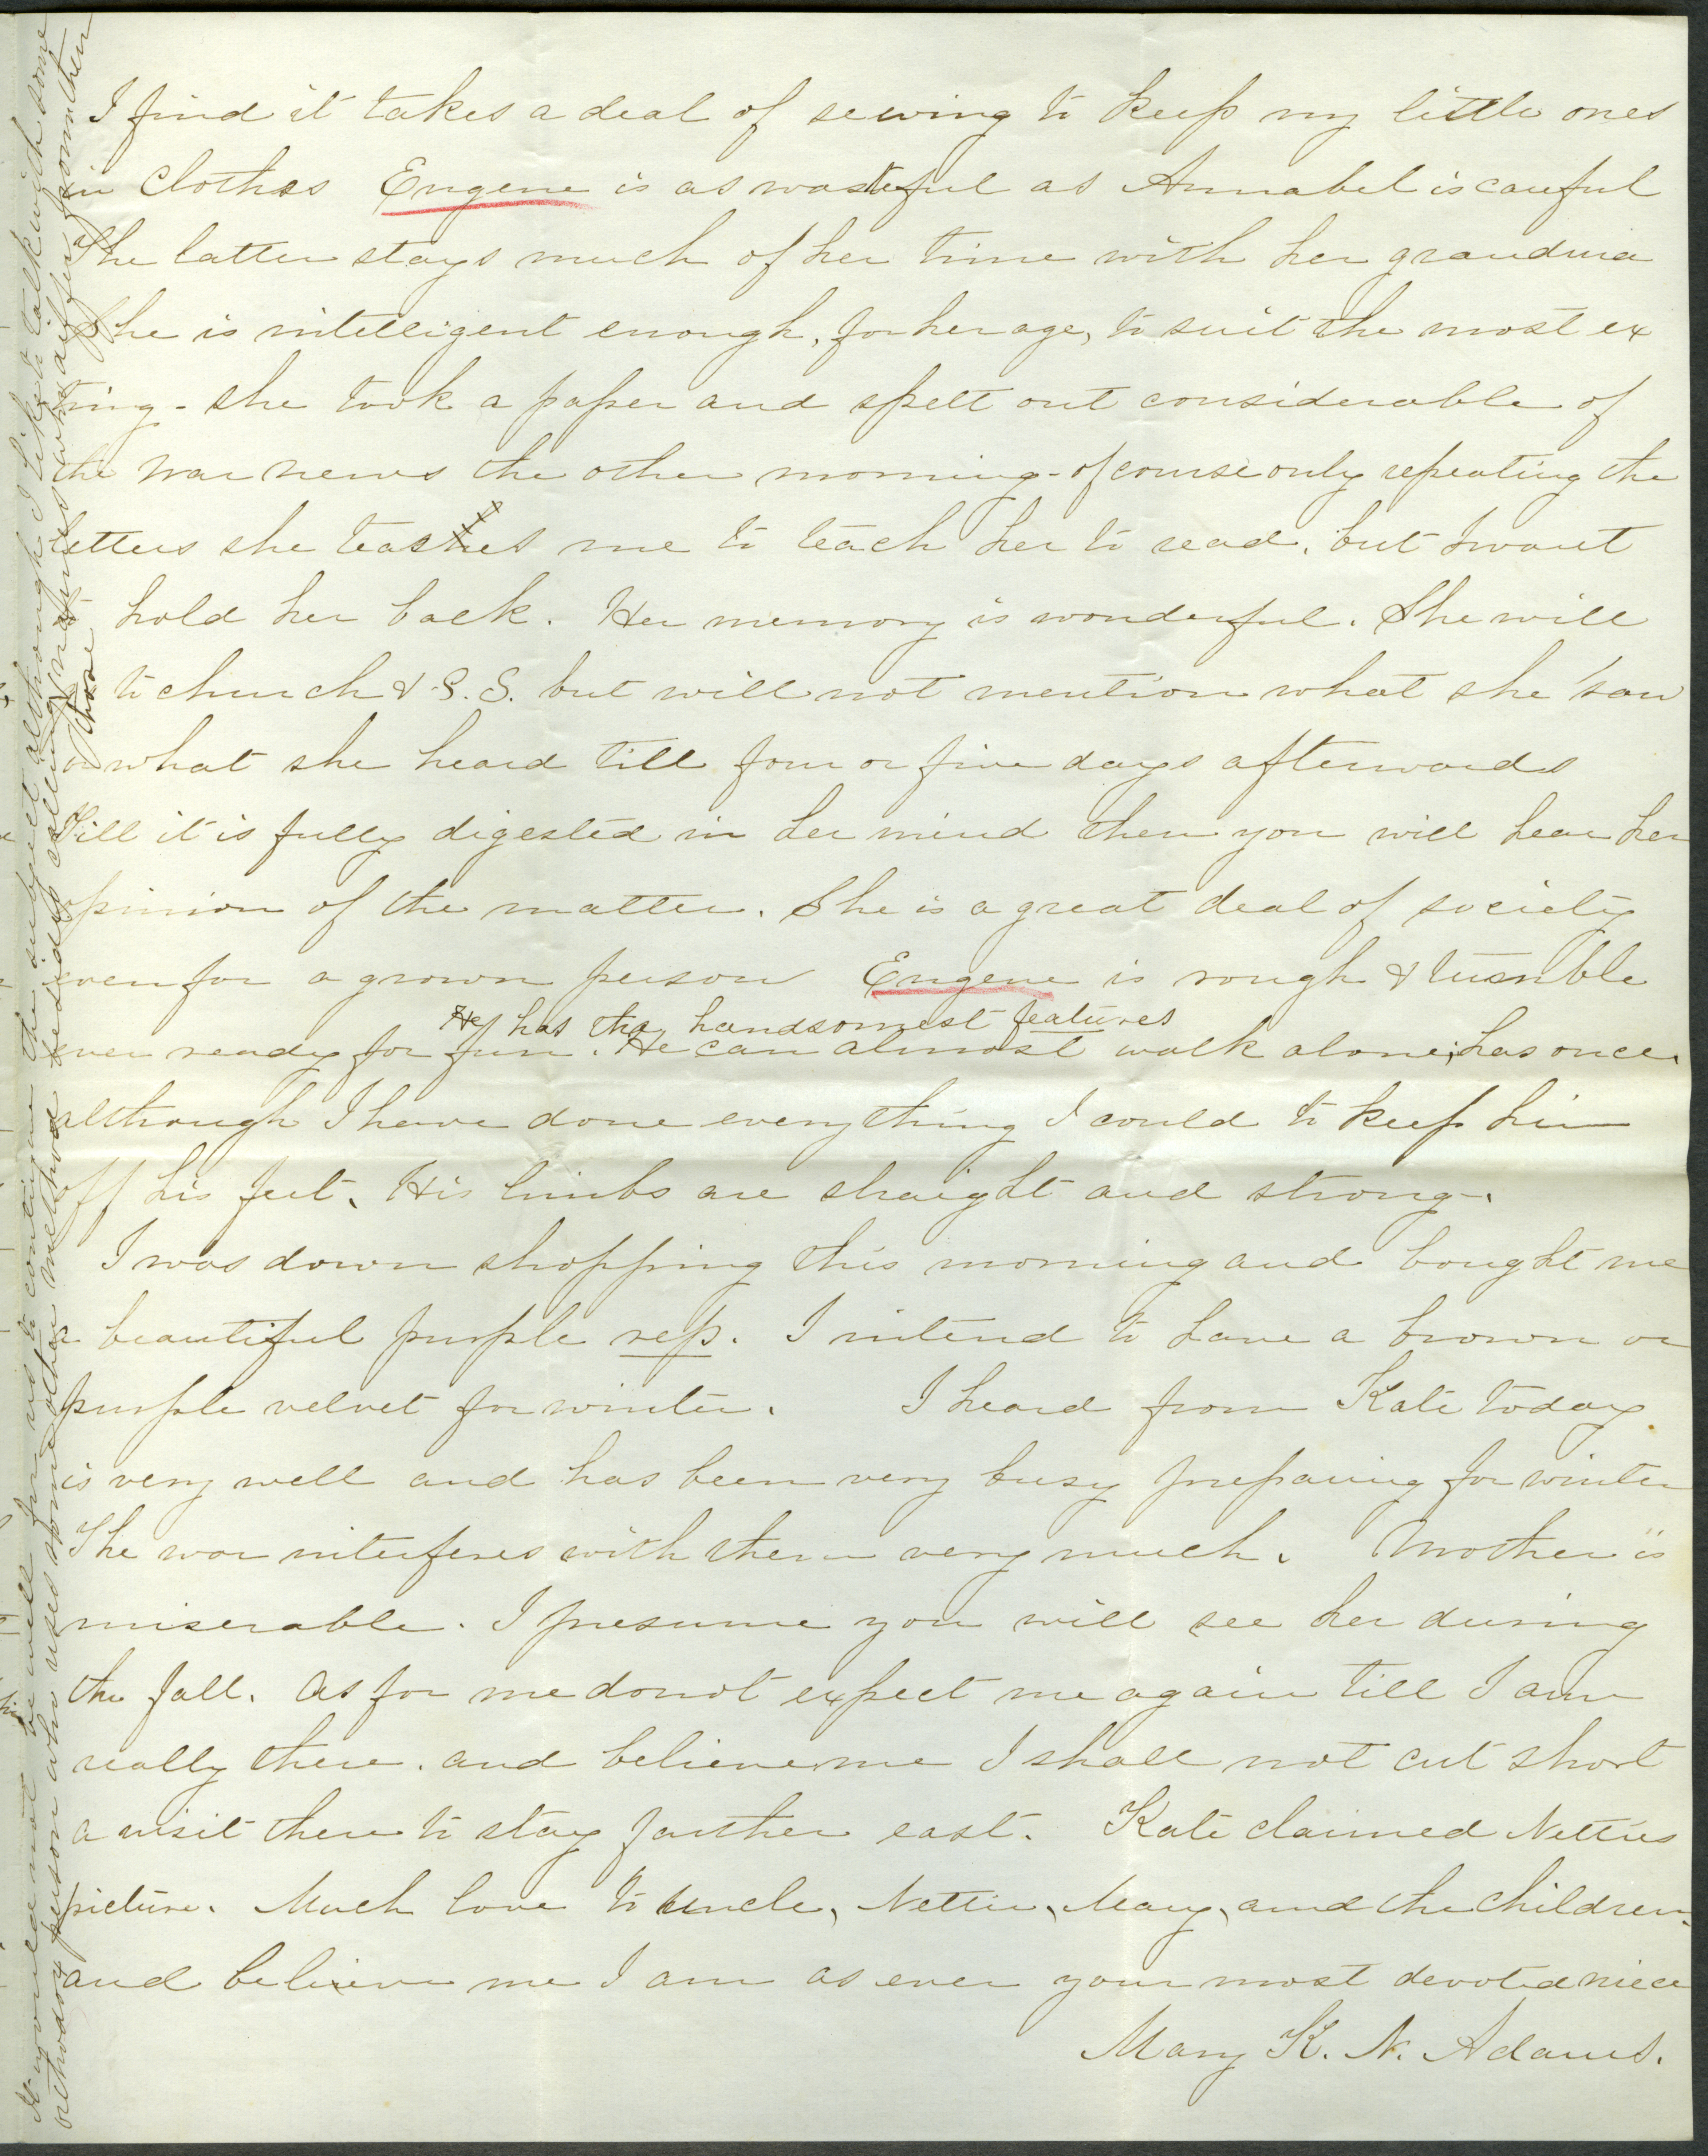 I find it takes a deal of sewing to keep my little ones
in clothes Eugene is as wasteful as Annabel is careful
The latter stays much of her time with her grandma
She is intelligent enough, for her age, to suit the most ex
ting - she took a paper and spelt out considerable of
the war news the other morning - of course only repeating the
letters she teases me to teach her to read, but I want
to hold her back. Her memory is wonderful. She will
to church & S. S. but will not mention what she saw
or what she heard till four or five days afterwards
Till it is fully digested in her mind then you will hear her
opinion of the matter. She is a great deal of society
even for a grown person Eugene is rough & tumble
He has the handsomest features
ever ready for fun. He can almost walk alone; has once.
although I have done everything I could to keep him
off his feet. His limbs are straight and strong.
I was down shopping this morning and bought me
a beautiful purple rep. I intend to have a brown or
purple velvet for winter. I heard from Kate today
is very well and has been very busy preparing for winter
The war interferes with them very much. Mother is
miserable. I presume you will see her during
the fall. As for me do not expect me again till I am
really there. and believe me I shall not cut short
a visit there to stay farther east. Kate claimed Netties
picture. Much love to Uncle, Nettie, Mary, and the children.
and believe me I am as ever your most devoted niece
Mary K. N. Adams.
It would not be well for us to continue the subject although I like to talk with some
orthodox person who uses some other method besides calling names who differ from them
those